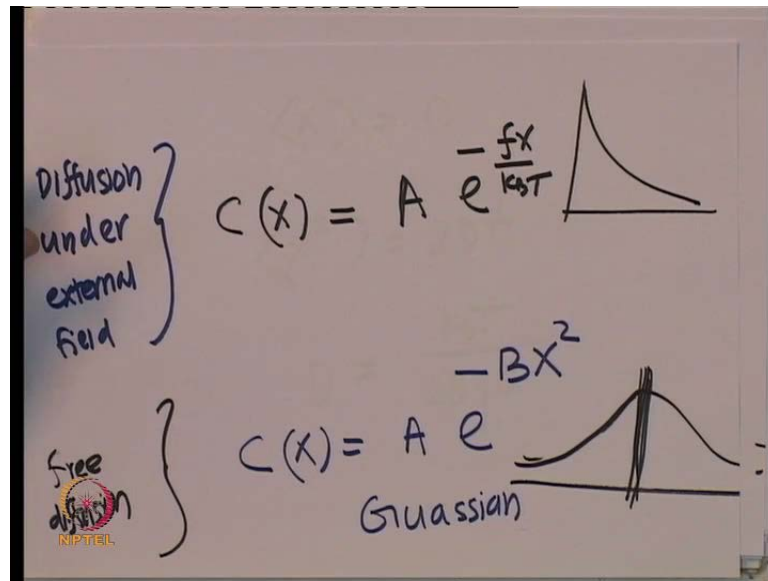 Diffusion
under
external
field
C(x) = A e^{-fx/KBT}
free
diffusion
C(x) = A e^{-Bx^2}
Guassian
NPTEL